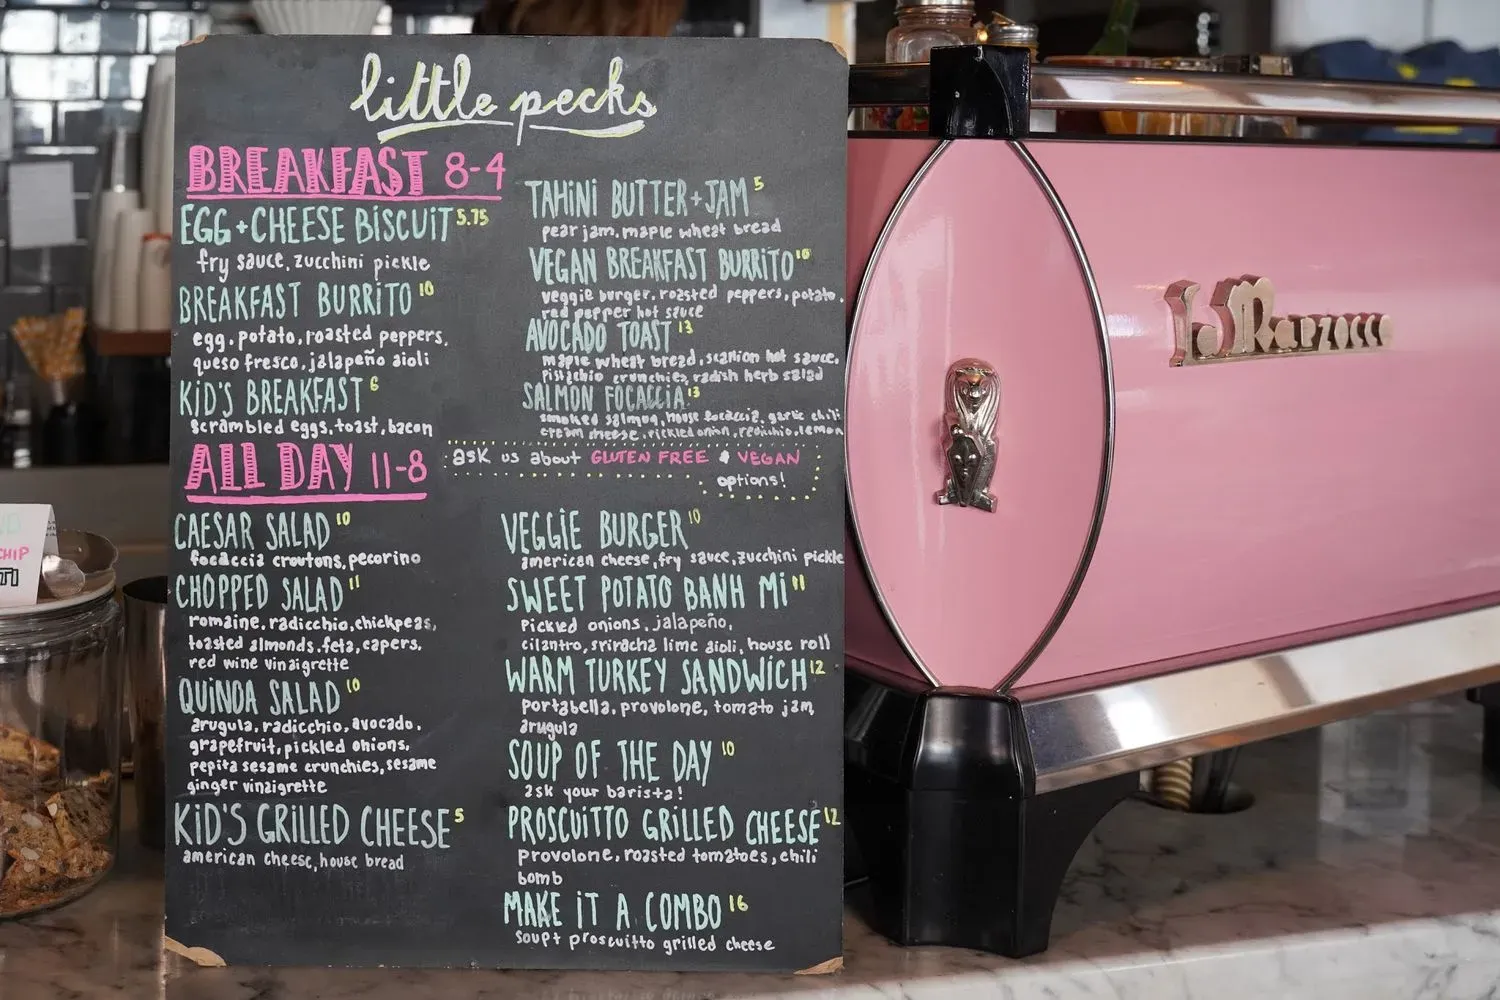 little pecks
BREAKFAST 8-4
EGG + CHEESE BISCUIT 5.75
fry sauce, zucchini pickle
BREAKFAST BURRITO 10
egg, potato, roasted peppers,
queso fresco, jalapeño aioli
KID'S BREAKFAST 6
scrambled eggs, toast, bacon
TAHINI BUTTER + JAM 5
pear jam, maple wheat bread
VEGAN BREAKFAST BURRITO 10
veggie burger, roasted peppers, potato,
red pepper hot sauce
AVOCADO TOAST 13
maple wheat bread, scallion hot sauce,
pistachio crunchies, radish herb salad
SALMON FOCACCIA 13
smoked salmon, house focaccia, garlic chili
cream cheese, pickled onion, radicchio, lemon
ask us about GLUTEN FREE & VEGAN
options!
ALL DAY 11-8
CAESAR SALAD 10
focaccia croutons, pecorino
CHOPPED SALAD 11
romaine, radicchio, chickpeas,
toasted almonds, feta, capers,
red wine vinaigrette
QUINOA SALAD 10
arugula, radicchio, avocado,
grapefruit, pickled onions,
pepita sesame crunchies, sesame
ginger vinaigrette
KID'S GRILLED CHEESE 5
american cheese, house bread
VEGGIE BURGER 10
american cheese, fry sauce, zucchini pickle
SWEET POTATO BANH MI 11
pickled onions, jalapeño,
cilantro, sriracha lime aioli, house roll
WARM TURKEY SANDWICH 12
portabella, provolone, tomato jam,
arugula
SOUP OF THE DAY 10
ask your barista!
PROSCUITTO GRILLED CHEESE 12
provolone, roasted tomatoes, chili
bomb
MAKE IT A COMBO 16
soup + proscuitto grilled cheese
La Marzocco
CHIP